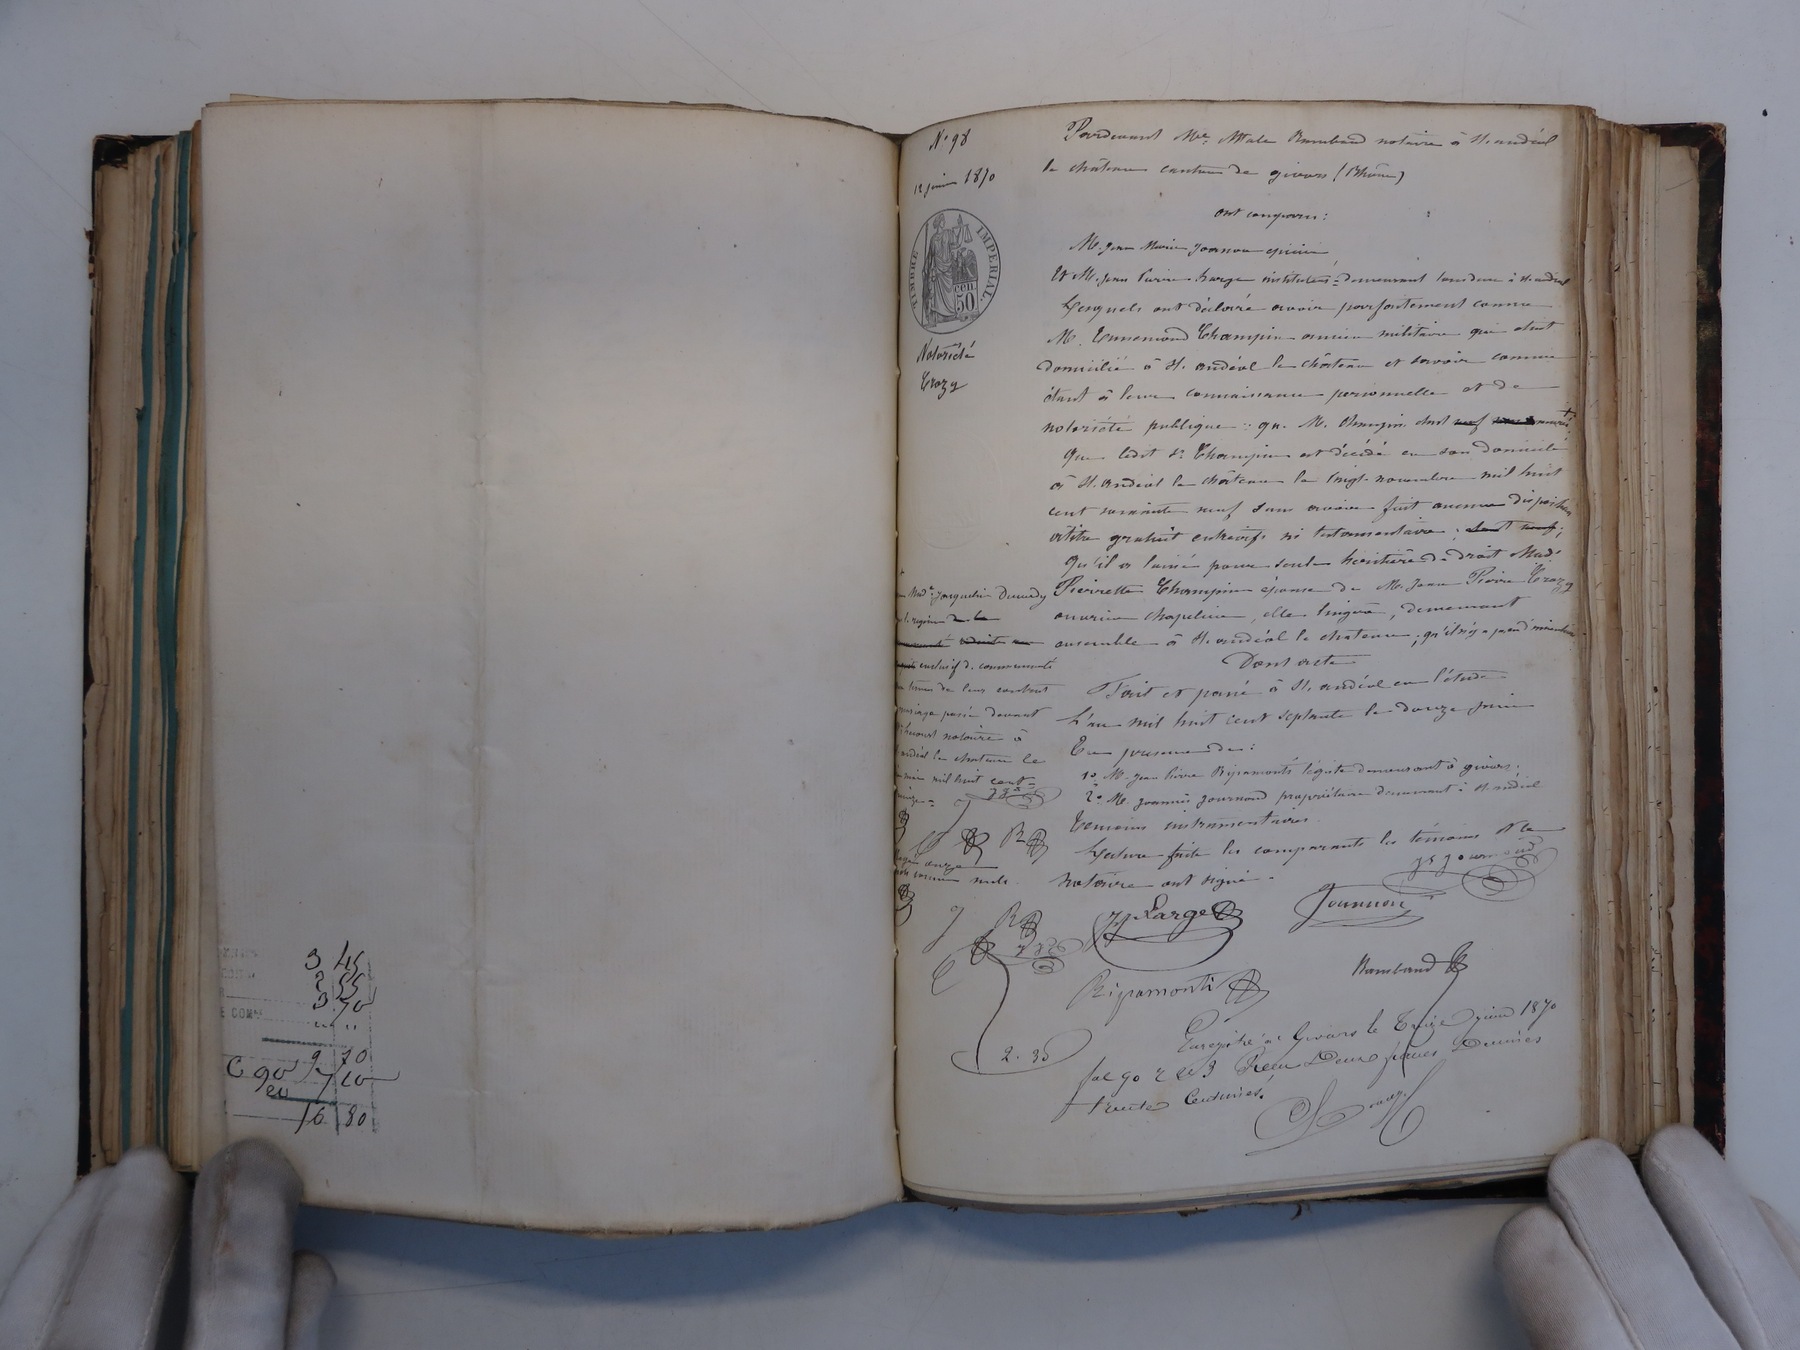 3 45
2 55
3.70
" "
9 70
C 90 7 10
20
16 80
N° 98
12 juin 1870
TIMBRE IMPERIAL.
50 CEN
Notoriété
Crozy
Pardevant Me. Rambaud notaire à St. andéol
le château canton de givors (Rhône)
ont comparu:
M. Jean Marie
Et M. Jean Pierre Large instituteur demeurant tous deux à St. andéol
Lesquels ont déclaré avoir parfaitement connu
M. Ennemond Champin ancien militaire qui était
domicilié à St. andéol le château et savoir comme
étant à leur connaissance personnelle et de
notoriété publique: que M. Champin était veuf
Que ledit Sr. Champin est décédé en son domicile
à St. andéol le château le vingt novembre mil huit
cent soixante neuf sans avoir fait aucune disposition
à titre gratuit entrevifs ni testamentaire
Qu'il a laissé pour seule héritière de droit Made
Pierrette Champin épouse de M. Jean Pierre Crozy
ouvrier chapelier, elle lingère, demeurant
ensemble à St. andéol le château; qu'il n'y a pas d'inventaire
Dont acte
Fait et passé à St. andéol en l'étude
L'an mil huit cent septante le douze juin
En présence de:
1° M. Jean Pierre Ripamonti demeurant à givors.
2° M. Joannis Journoud propriétaire demeurant à St. andéol
témoins instrumentaires.
Lecture faite les comparants les témoins et le
notaire ont signé.
Made Jacqueline
le régime de la
exclusif de communauté
termes de leur contrat
mariage passé devant
notaire à
andéol le château le
mil huit cent
nuls.
J. Journoud
JP Large
Ripamonti
Rambaud
2.30
Enregistré à Givors le treize juin 1870
fol 90 Reçu Deux francs Décimes
trente Centimes.